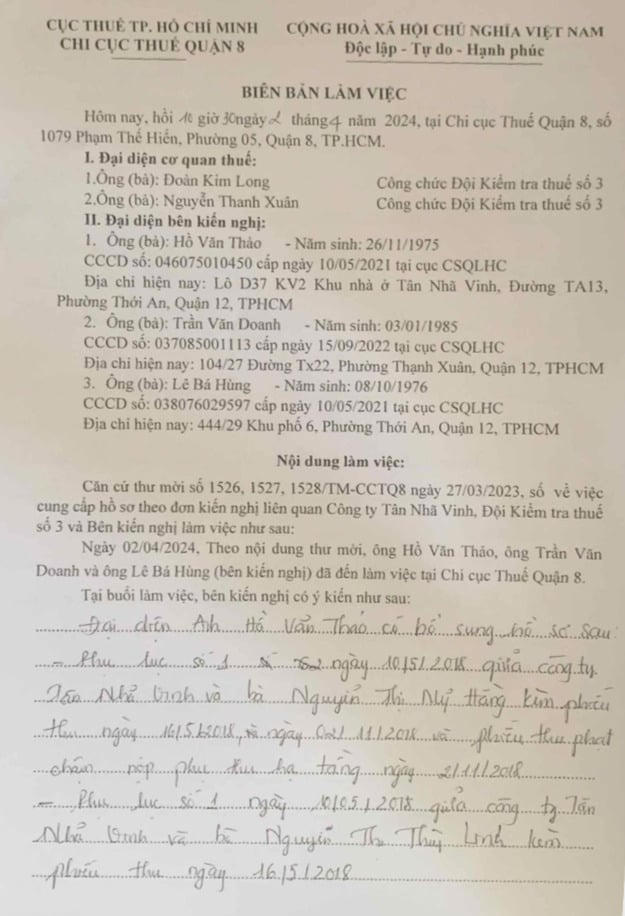 CỤC THUẾ TP. HỒ CHÍ MINH
CHI CỤC THUẾ QUẬN 8
CỘNG HOÀ XÃ HỘI CHỦ NGHĨA VIỆT NAM
Độc lập - Tự do - Hạnh phúc
BIÊN BẢN LÀM VIỆC
Hôm nay, hồi 10 giờ 30 ngày 2 tháng 4 năm 2024, tại Chi cục Thuế Quận 8, số
1079 Phạm Thế Hiển, Phường 05, Quận 8, TP.HCM.
I. Đại diện cơ quan thuế:
1.Ông (bà): Đoàn Kim Long Công chức Đội Kiểm tra thuế số 3
2.Ông (bà): Nguyễn Thanh Xuân Công chức Đội Kiểm tra thuế số 3
II. Đại diện bên kiến nghị:
1. Ông (bà): Hồ Văn Thảo - Năm sinh: 26/11/1975
CCCD số: 046075010450 cấp ngày 10/05/2021 tại cục CSQLHC
Địa chỉ hiện nay: Lô D37 KV2 Khu nhà ở Tân Nhã Vinh, Đường TA13,
Phường Thới An, Quận 12, TPHCM
2. Ông (bà): Trần Văn Doanh - Năm sinh: 03/01/1985
CCCD số: 037085001113 cấp ngày 15/09/2022 tại cục CSQLHC
Địa chỉ hiện nay: 104/27 Đường Tx22, Phường Thạnh Xuân, Quận 12, TPHCM
3. Ông (bà): Lê Bá Hùng - Năm sinh: 08/10/1976
CCCD số: 038076029597 cấp ngày 10/05/2021 tại cục CSQLHC
Địa chỉ hiện nay: 444/29 Khu phố 6, Phường Thới An, Quận 12, TPHCM
Nội dung làm việc:
Căn cứ thư mời số 1526, 1527, 1528/TM-CCTQ8 ngày 27/03/2023, số về việc
cung cấp hồ sơ theo đơn kiến nghị liên quan Công ty Tân Nhã Vinh, Đội Kiểm tra thuế
số 3 và Bên kiến nghị làm việc như sau:
Ngày 02/04/2024, Theo nội dung thư mời, ông Hồ Văn Thảo, ông Trần Văn
Doanh và ông Lê Bá Hùng (bên kiến nghị) đã đến làm việc tại Chi cục Thuế Quận 8.
Tại buổi làm việc, bên kiến nghị có ý kiến như sau:
Đại diện Anh Hồ Văn Thảo có bổ sung hồ sơ sau:
- Phụ lục số 1 ngày 10/5/2018 giữa công ty
Tân Nhã Vinh và bà Nguyễn Thị Mỹ Hằng kèm phiếu
thu ngày 16/5/2018, và ngày 02/11/2018 và phiếu thu phạt
chậm nộp phụ thu hạ tầng ngày 2/11/2018
- Phụ lục số 1 ngày 10/05/2018 giữa công ty Tân
Nhã Vinh và bà Nguyễn Thị Thùy Linh kèm
phiếu thu ngày 16/5/2018